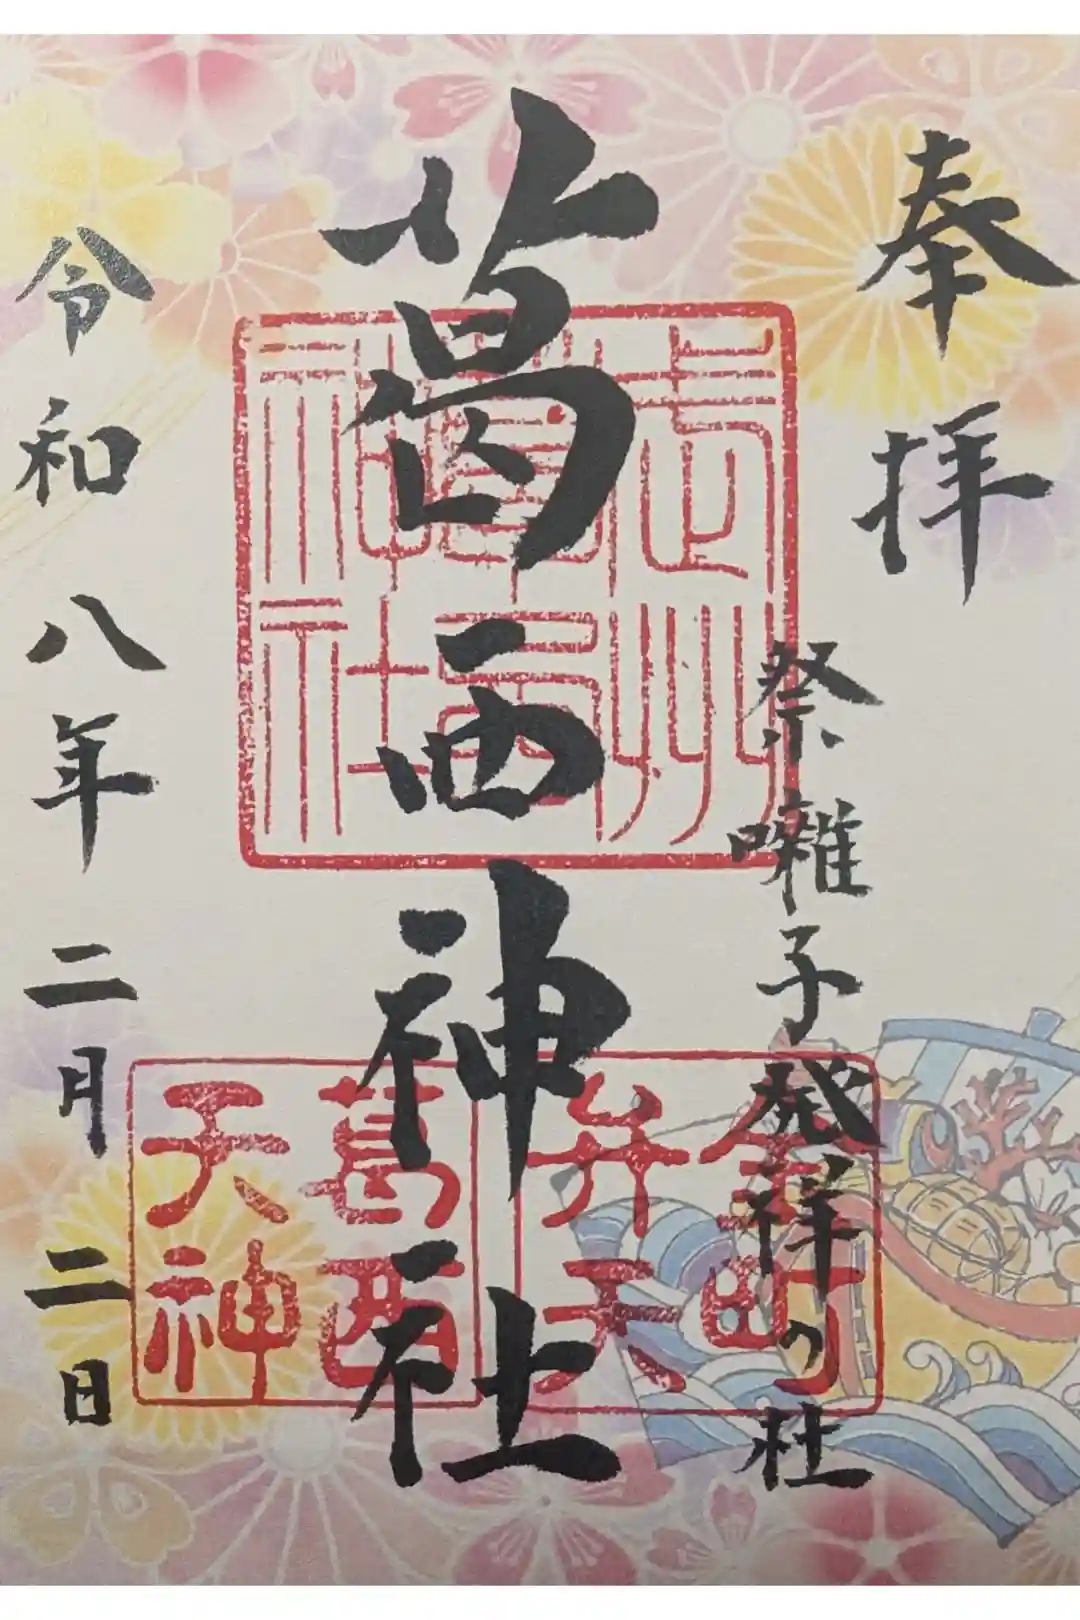 奉拝
祭囃子発祥の社
葛西神社
令和八年二月二日
武州
葛西
神社
金町
弁天
葛西
天神